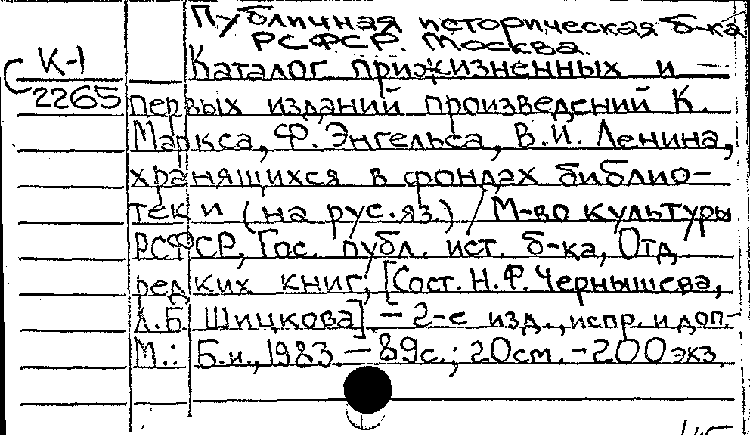 Публичная историческая б-ка
РСФСР. Москва.
С К-1
2265
Каталог прижизненных и
первых изданий произведений К.
Маркса, Ф. Энгельса, В.И. Ленина,
хранящихся в фондах библио-
теки (на рус. яз.) / М-во культуры
РСФСР, Гос. публ. ист. б-ка, Отд.
редких книг; [Сост. Н.Ф. Чернышева,
Л.Б. Шицкова]. - 2-е изд., испр. и доп.
М.: Б.и., 1983. - 89с.; 20см. - 200экз.